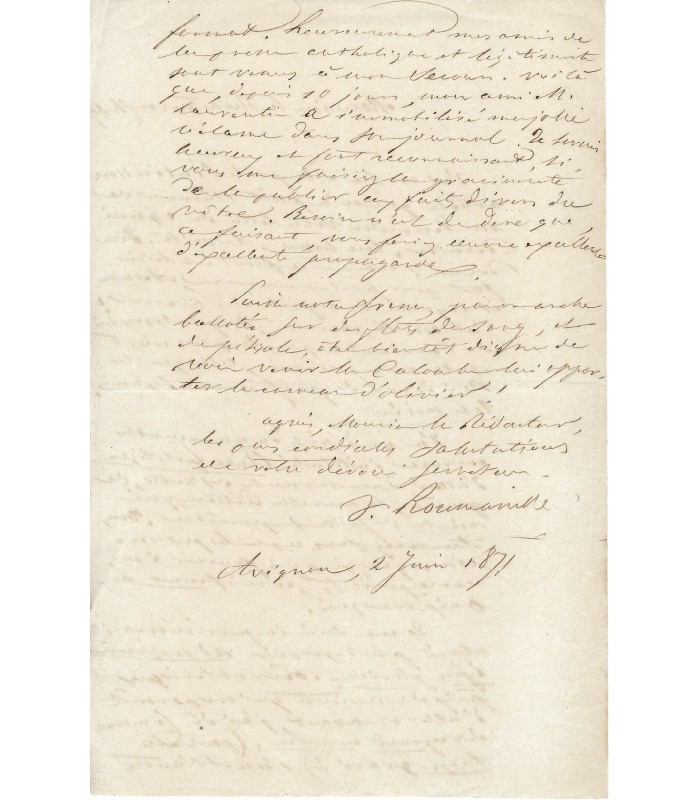 format. heureusement mes amis de
la presse catholique et légitimiste
sont venus à mon secours. voilà
que, depuis 10 jours, mon ami M.
Laurentie a immobilisé ma jolie
réclame dans son journal. Je serais
heureux et fort reconnaissant, si
vous me faisiez la gracieuseté
de la publier aux faits divers du
vôtre. Besoin n'est de dire que,
ce faisant, vous feriez œuvre excellente
d'excellente propagande.
notre pauvre arche
ballotée sur des flots de sang, et
de pétrole, être bientôt digne de
voir venir la Colombe lui appor-
ter le rameau d'olivier!
agréez, Monsieur le Rédacteur,
les plus cordiales salutations
de votre dévoué serviteur.
J. Roumanille
Avignon, 2 Juin 1871